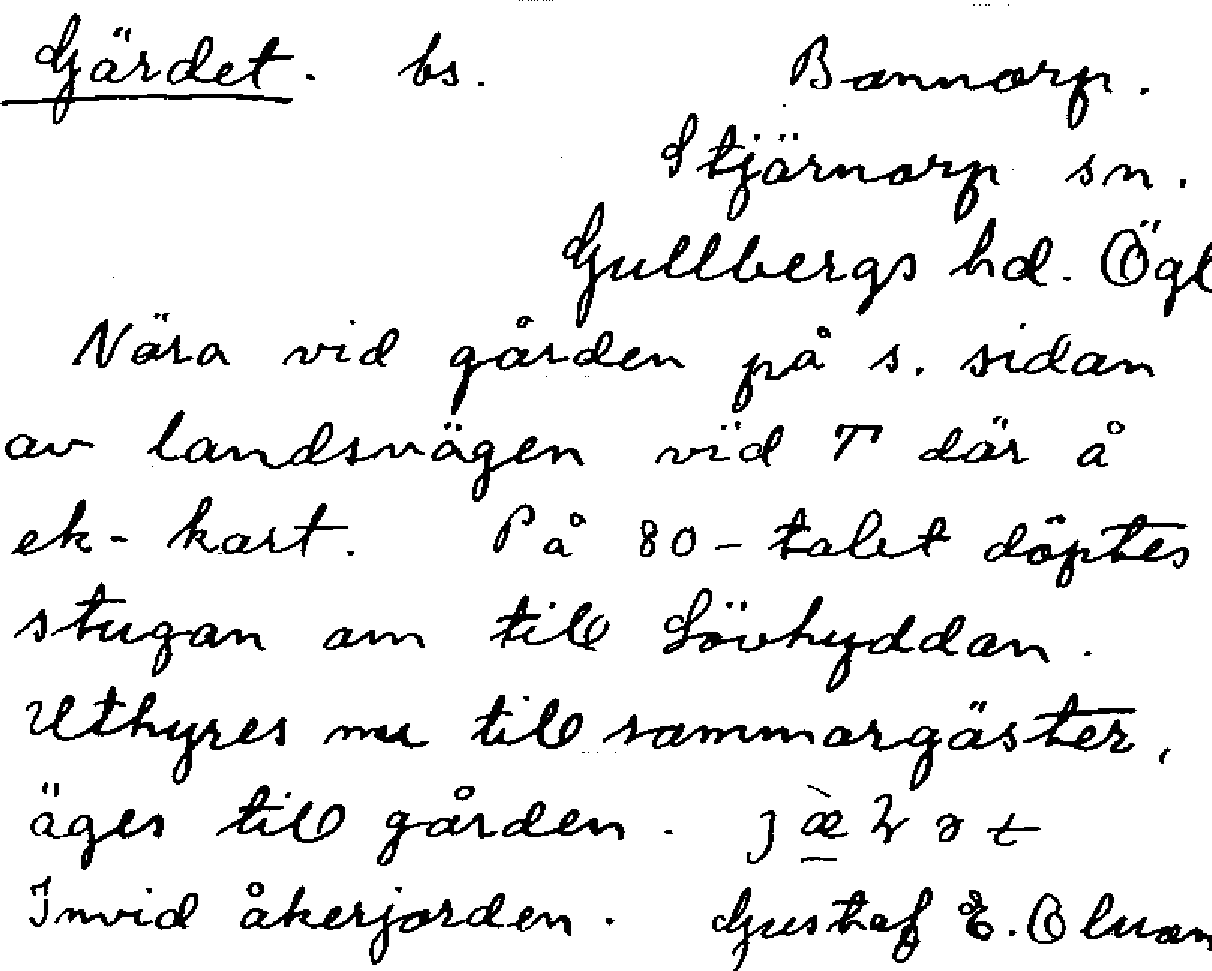 Gärdet. bs. Bannorp.
Stjärnorp sn.
Gullbergs hd. Ögl
Nära vid gården på s. sidan
av landsvägen vid T där å
ek-kart. På 80-talet döptes
stugan om till Lövhyddan.
Uthyres nu till sommargäster,
äges till gården.
Invid åkerjorden. Gustaf E.